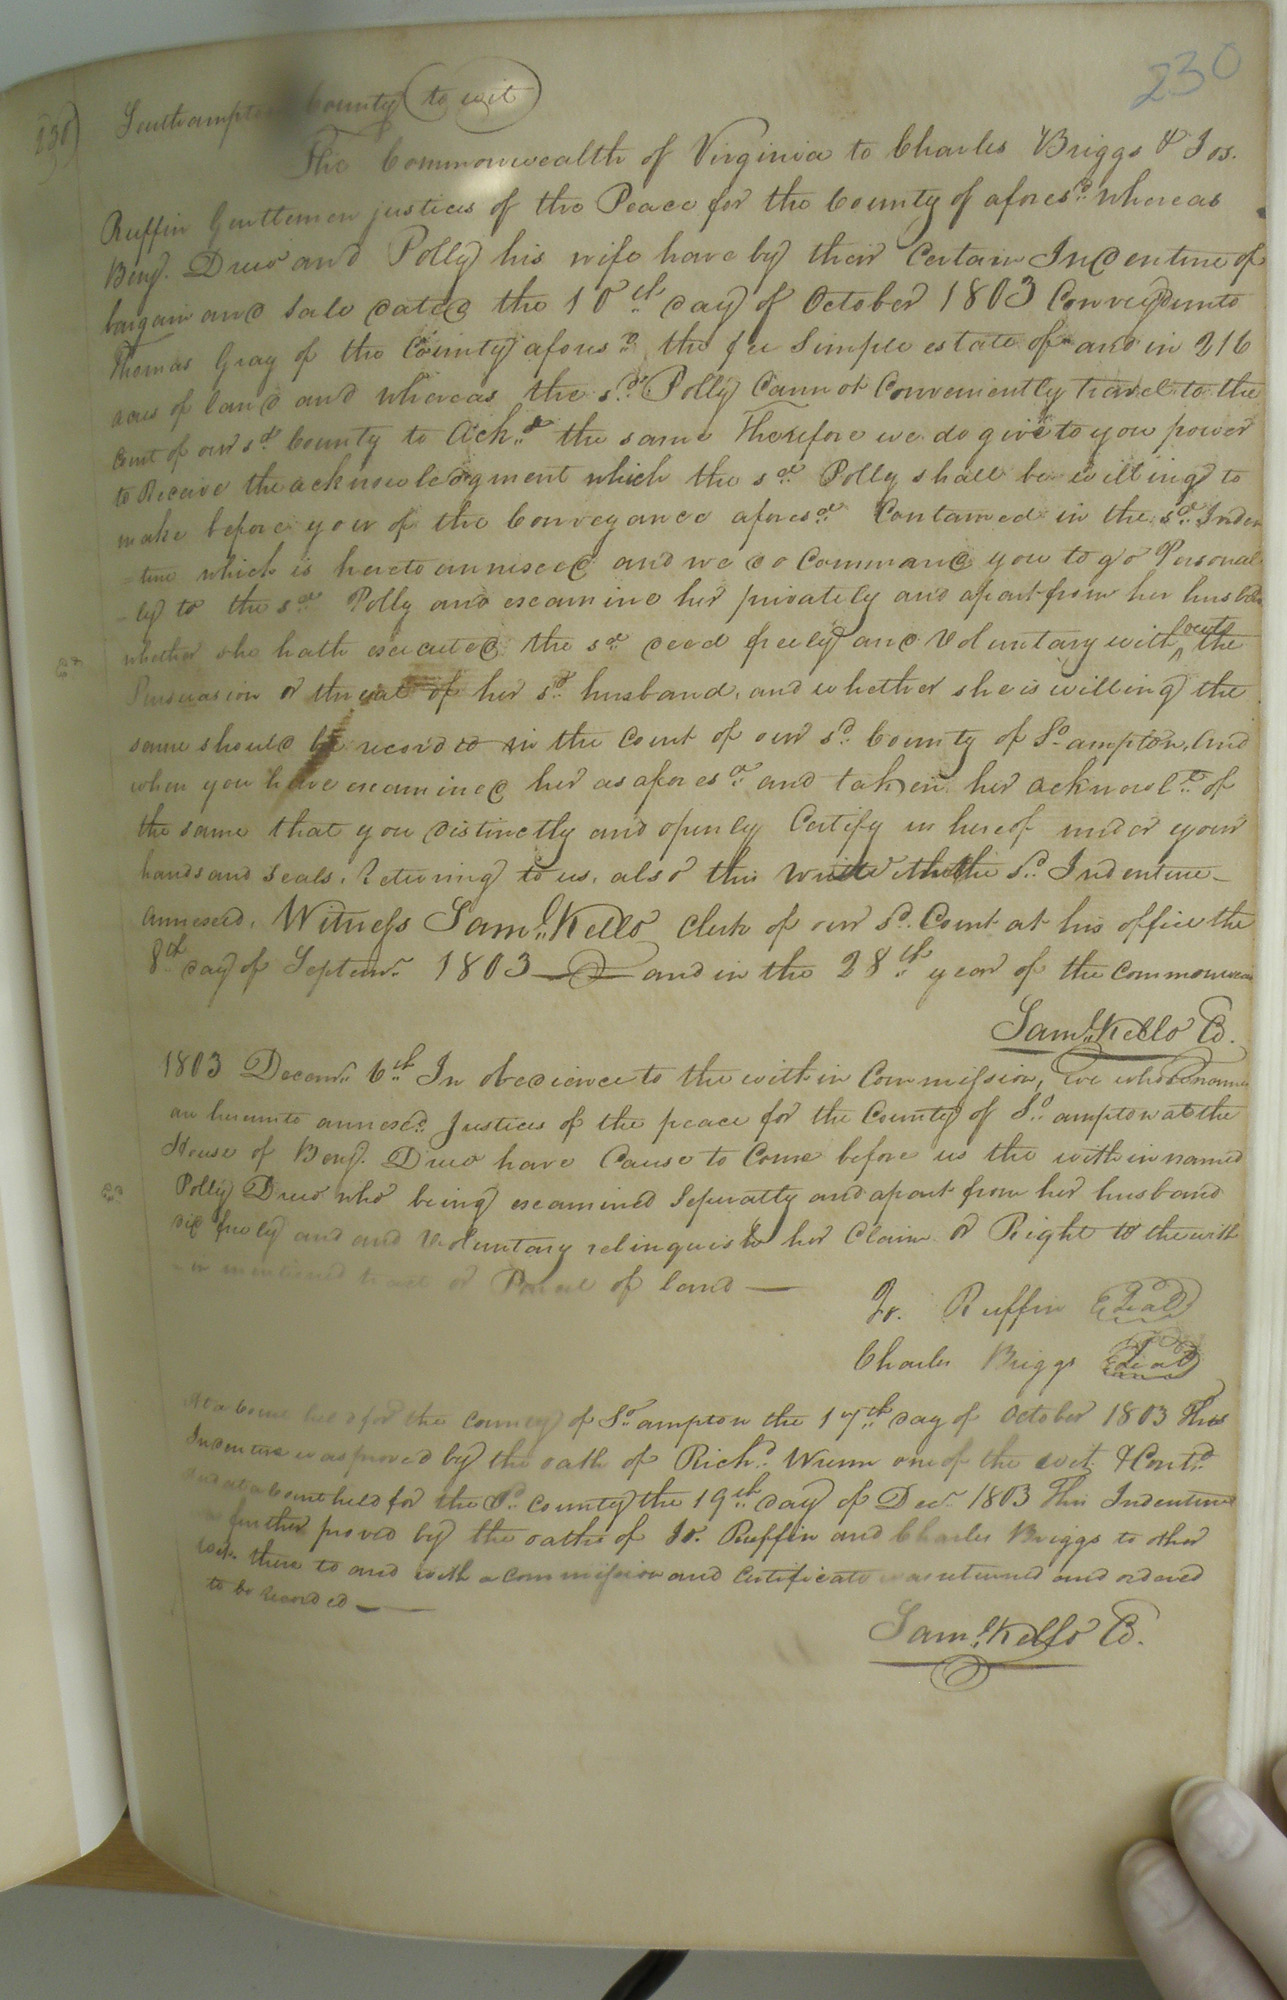 230
230)
Southampton County (to wit)
The Commonwealth of Virginia to Charles Briggs & Jos.
Ruffin Gentlemen justices of the Peace for the County of afores.d whereas
Benj. Drew and Polly his wife have by their Certain Indenture of
bargain and Sale dated the 10th day of October 1803 Conveyd unto
Thomas Gray of the County afores.d the fee Simple estate of and in 216
acres of land and whereas the s.d Polly Cannot Conveniently travel to the
Court of our s.d County to Ack.d the same Therefore we do give to you power
to Receive the acknowledgment which the s.d Polly shall be willing to
make before your of the Conveyance afores.d Contained in the s.d Inden
-ture which is hereto annexed and we do Command you to go Personal
-ly to the s.d Polly and examine her privately and apart from her husban
whether she hath executed the s.d deed freely and Voluntary with^out the
Persuasion or threat of her s.d husband, and whether she is willing the
same should be record'd in the Court of our s.d County of So.ampton, and
when you have examined her as afores.d and taken her acknowl.t of
the same that you distinctly and openly Certify us hereof under your
hands and Seals, Returning to us, also this the s.d Indenture
annexed, Witness Sam.l Kello Clerk of our s.d Court at his office the
8th day of Septem.r 1803 and in the 28th year of the Commonwea
Sam.l Kello C.
1803 Decem.r 6th In obedience to the within Commission, we whose names
are hereunto annexd. Justices of the peace for the County of So.ampton at the
House of Benj. Drew have Cause to Come before us the within named
Polly Drew who being examined Seperatly and apart from her husband
did freely and and Voluntary relinquish her Claim or Right to the with
-in mentioned tract or Parcel of land
Jo. Ruffin Seal
Charles Briggs Seal
At a Court held for the County of So.ampton the 17th day of October 1803 This
Indenture was proved by the oath of Rich.d Wrenn one of the wit. & Cont.d
And at a Court held for the s.d County the 19th day of Dec.r 1803 This Indenture
further proved by the oaths of Jo. Ruffin and Charles Briggs to other
wit. there to and with a commission and Certificate was returned and ordered
to be recorded
Sam.l Kello C.